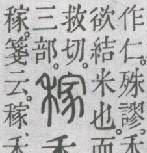 作仁。殊謬。禾
欲結米也。而
救切。
三部。
稼 禾
稼。箋云。稼